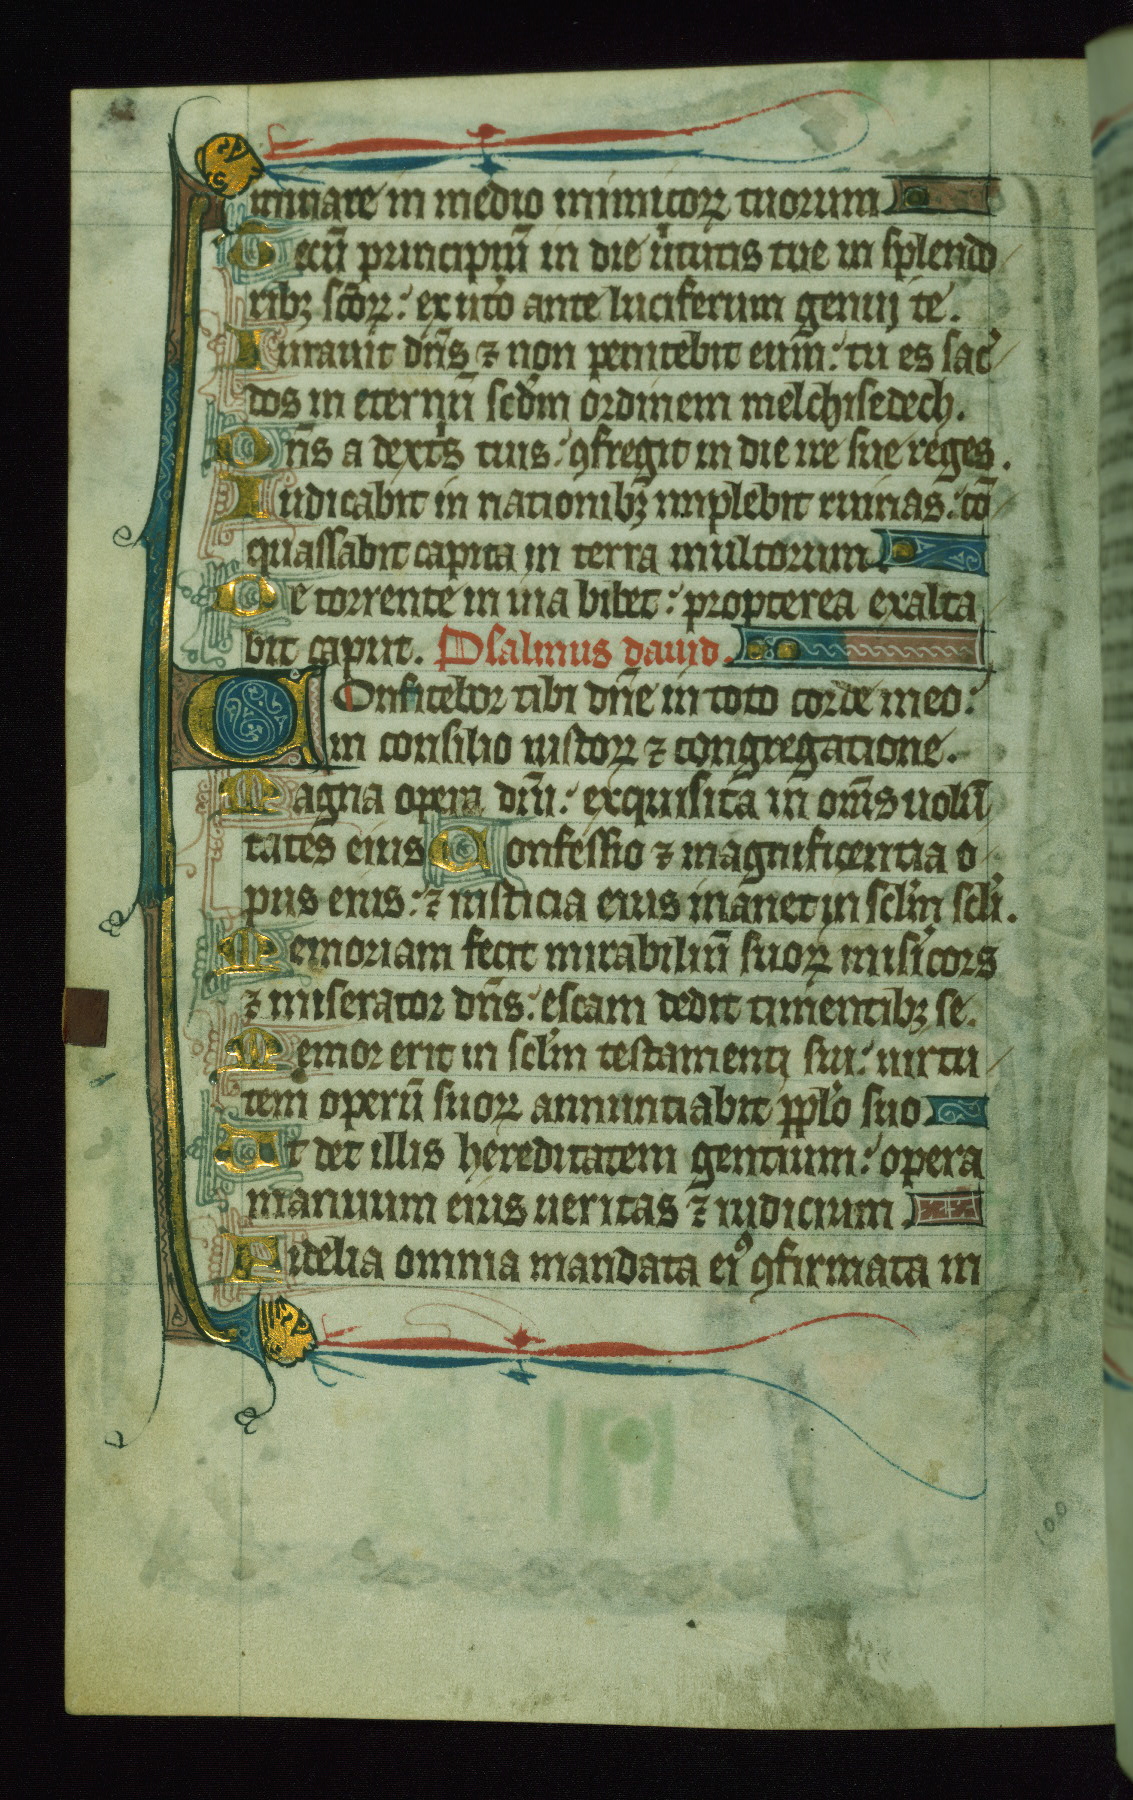 minare in medio inimicorꝝ tuorum
Tecū principiū in die uͥtutis tue in splendo
ribꝫ scōꝝ: ex utō ante luciferum genuij te.
Iurauit dn̄s ⁊ non penitebit eum: tu es sac̓
dos in eternū scd̓m ordinem melchisedech.
Dn̄s a dext̓s tuis: ꝯfregit in die ire sue reges.
Iudicabit in nationibꝫ implebit ruinas: cō
quassabit capita in terra multorum
De torrente in uia bibet: propterea exalta
bit caput. Psalmus dauid.
Confitebor tibi dn̄e in toto corde meo:
in consilio iustoꝝ ⁊ congregatione.
Magna opera dn̄i: exquisita in om̄s uolū
tates eius Confessio ⁊ magnificentia o
pus eius: ⁊ iusticia eius manet in scl̓m scl̓i.
Memoriam fecit mirabiliū suoꝝ mis̓icors
⁊ miserator dn̄s: escam dedit timentibꝫ se.
Memor erit in scl̓m testamenti sui: uirtu
tem operū suoꝝ annuntiabit ppl̓o suo
Ut det illis hereditatem gentium: opera
manuum eius ueritas ⁊ iudicium
Fidelia omnia mandata eiꝰ ꝯfirmata in
100